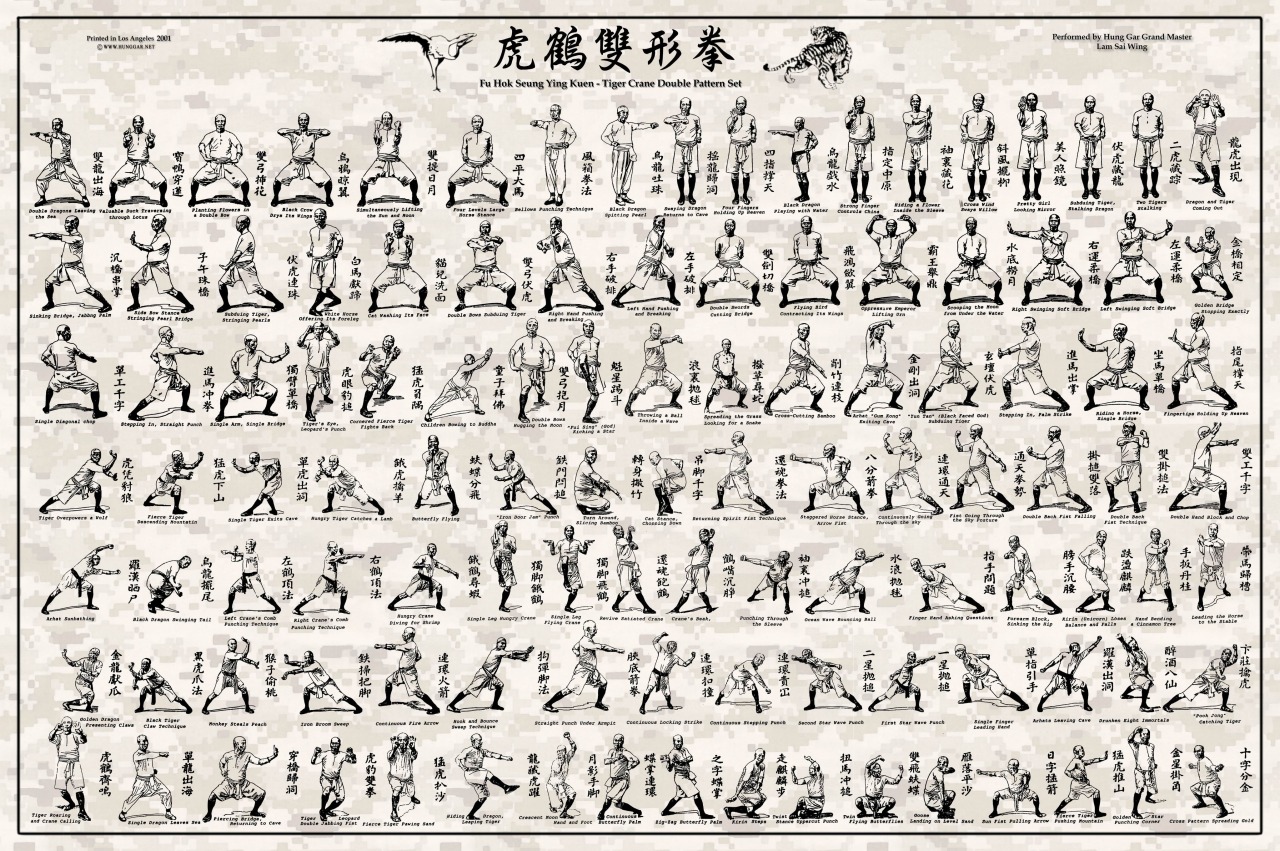 Printed in Los Angeles 2001
© WWW.HUNGGAR.NET
虎鶴雙形拳
Fu Hok Seung Ying Kuen - Tiger Crane Double Pattern Set
Performed by Hung Gar Grand Master
Lam Sai Wing
雙龍出海
寶鴨穿蓮
雙弓插花
烏鴉晾翼
雙提日月
四平大馬
風箱拳法
烏龍吐珠
搖龍歸洞
四指撐天
烏龍戲水
指定中原
袖裏藏花
斜風擺柳
美人照鏡
伏虎藏龍
二虎藏踪
龍虎出現
Double Dragons Leaving the Sea
Valuable Duck Traversing through Lotus
Planting Flowers in a Double Bow
Black Crow Drys Its Wings
Simultaneously Lifting the Sun and Moon
Four Levels Large Horse Stance
Bellows Punching Technique
Black Dragon Spitting Pearl
Swaying Dragon Returns to Cave
Four Fingers Holding Up Heaven
Black Dragon Playing with Water
Strong Finger Controls China
Hiding a Flower Inside the Sleeve
Cross Wind Sways Willow
Pretty Girl Looking Mirror
Subduing Tiger, Stalking Dragon
Two Tigers Stalking
Dragon and Tiger Coming Out
沉橋串掌
子午珠橋
伏虎連珠
白馬獻蹄
貓兒洗面
雙弓伏虎
右手破排
左手破排
雙劍切橋
飛鴻斂翼
霸王舉鼎
水底撈月
右運柔橋
左運柔橋
金橋相定
Sinking Bridge, Jabbng Palm
Side Bow Stance Stringing Pearl Bridge
Subduing Tiger, Stringing Pearls
White Horse Offering Its Foreleg
Cat Washing Its Face
Double Bows Subduing Tiger
Right Hand Pushing and Breaking
Left Hand Pushing and Breaking
Double Swords Cutting Bridge
Flying Bird Contracting Its Wings
Oppressive Emperor Lifting Urn
Scooping the Moon from Under the Water
Right Swinging Soft Bridge
Left Swinging Soft Bridge
Golden Bridge Stopping Exactly
單工千字
進馬冲拳
獨臂單橋
虎眼豹搥
猛虎負隅
童子拜佛
雙弓抱月
魁星踢斗
浪裏拋毬
撥草尋蛇
削竹連枝
金剛出洞
玄壇伏虎
進馬出掌
坐馬單橋
指尾撐天
Single Diagonal chop
Stepping In, Straight Punch
Single Arm, Single Bridge
Tiger's Eye, Leopard's Punch
Cornered Fierce Tiger Fights Back
Children Bowing to Buddha
Double Bows Hugging the Moon
"Fui Sing" (God) Kicking a Star
Throwing a Ball Inside a Wave
Spreading the Grass Looking for a Snake
Cross-Cutting Bamboo
Arhat "Gum Kong" Exiting Cave
"Yun Tan" (Black Faced God) Subduing Tiger
Stepping In, Palm Strike
Riding a Horse, Single Bridge
Fingertips Holding Up Heaven
虎凭對狼
猛虎下山
單虎出洞
餓虎擒羊
蛺蝶分飛
鉄門閂搥
轉身撒竹
吊脚千字
還魂拳法
八分箭拳
連環通天
通天拳勢
掛搥雙落
雙掛搥法
雙工千字
Tiger Overpowers a Wolf
Fierce Tiger Descending Mountain
Single Tiger Exits Cave
Hungry Tiger Catches a Lamb
Butterfly Flying
"Iron Door Jam" Punch
Turn Around, Slicing Bamboo
Cat Stance, Chopping Down
Returning Spirit Fist Technique
Staggered Horse Stance, Arrow Fist
Continuously Going Through the Sky
Fist Going Through the Sky Posture
Double Back Fist Falling
Double Back Fist Technique
Double Hand Block and Chop
羅漢晒尸
烏龍擺尾
左鶴頂法
右鶴頂法
餓鶴尋蝦
獨脚餓鶴
獨脚飛鶴
還魂飽鶴
鶴嘴沉睜
袖裏冲搥
水浪拋毬
指手問題
膀手沉腰
跌盪麒麟
手扳丹桂
帶馬歸槽
Arhat Sunbathing
Black Dragon Swinging Tail
Left Crane's Comb Punching Technique
Right Crane's Comb Punching Technique
Hungry Crane Diving for Shrimp
Single Leg Hungry Crane
Single Leg Flying Crane
Revive Satiated Crane
Crane's Beak,
Punching Through the Sleeve
Ocean Wave Bouncing Ball
Finger Hand Asking Questions
Forearm Block, Sinking the Hip
Kirin (Unicorn) Loses Balance and Falls
Hand Bending a Cinnamon Tree
Leading the Horse to the Stable
金龍獻爪
黑虎爪法
猴子偷桃
鉄掃把脚
連環火箭
拘彈脚法
腋底箭拳
連環扣撞
連環賁岀
二星拋搥
一星拋搥
單指引手
羅漢出洞
醉酒八仙
卞莊擒虎
Golden Dragon Presenting Claws
Black Tiger Claw Technique
Monkey Steals Peach
Iron Broom Sweep
Continuous Fire Arrow
Hook and Bounce Sweep Technique
Straight Punch Under Armpit
Continuous Locking Strike
Continuous Stepping Punch
Second Star Wave Punch
First Star Wave Punch
Single Finger Leading Hand
Arhats Leaving Cave
Drunken Eight Immortals
"Pook Jong" Catching Tiger
虎鶴齊鳴
單龍出海
穿橋歸洞
虎豹雙拳
猛虎扒沙
龍藏虎躍
月影手脚
蝶掌連環
之字蝶掌
走麒麟步
扭馬冲搥
雙飛蛺蝶
雁落平沙
日字搥箭
猛虎推山
金星掛角
十字分金
Tiger Roaring and Crane Calling
Single Dragon Leaves Sea
Piercing Bridge, Returning to Cave
Tiger Leopard Double Jabbing Fist
Fierce Tiger Pawing Sand
Hiding Dragon, Leaping Tiger
Crescent Moon Hand and Foot
Continuous Butterfly Palm
Zig-Zag Butterfly Palm
Kirin Steps
Twist Stance Uppercut Punch
Twin Flying Butterflies
Goose Landing on Level Sand
Sun Fist Pulling Arrow
Fierce Tiger Pushing Mountain
Golden Star Punching Corner
Cross Pattern Spreading Gold